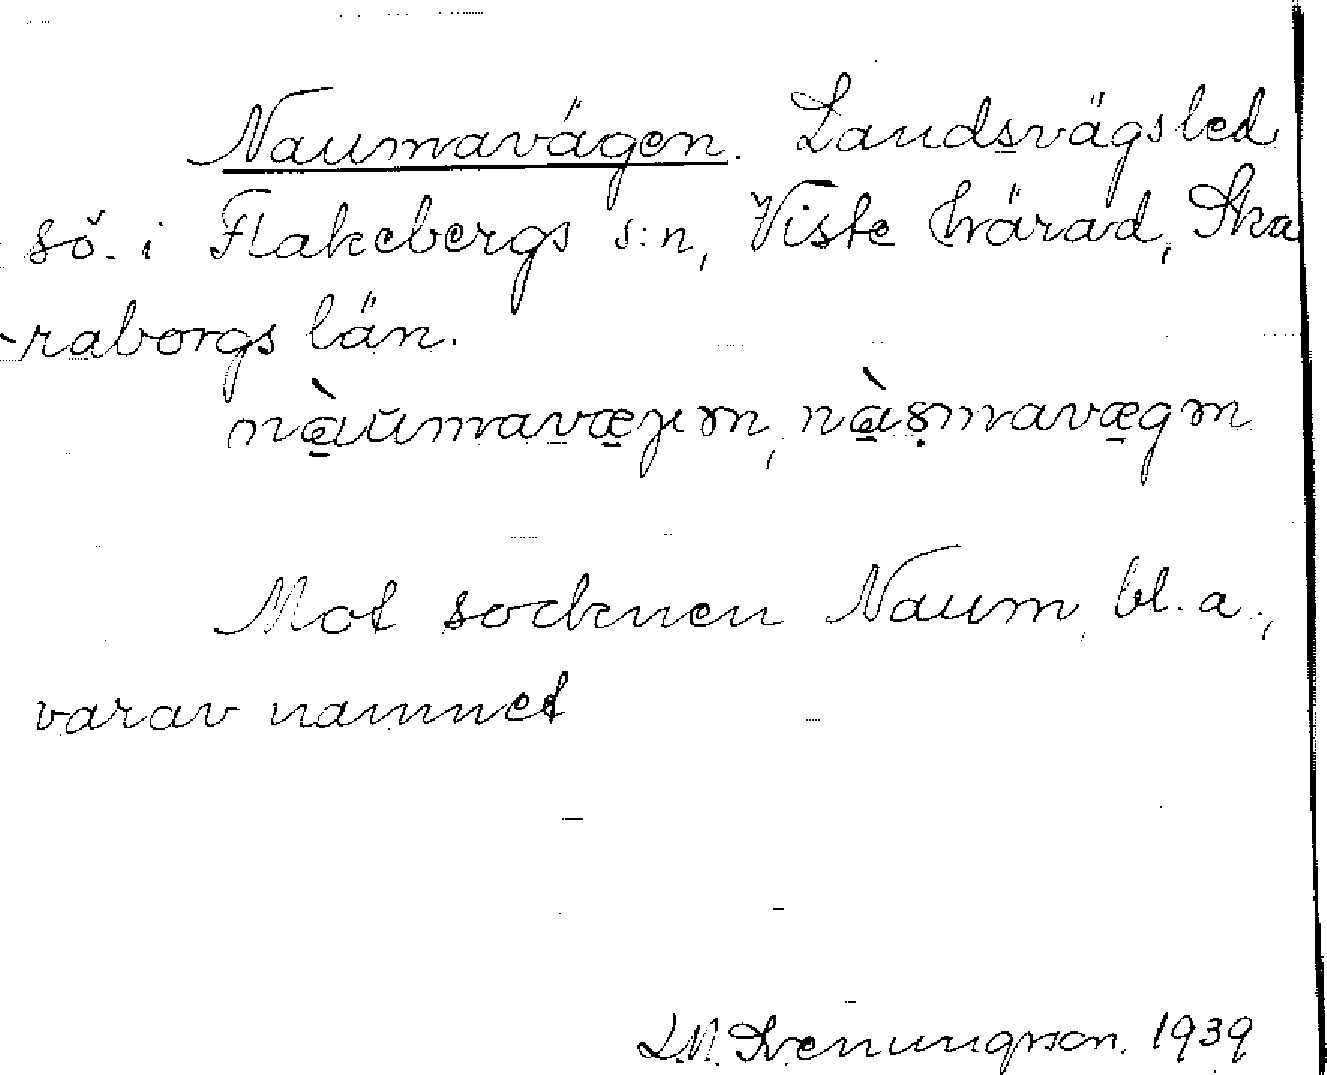 Naumavägen. Landsvägsled
sö. i Flakebergs s:n, Viste härad, Ska
-raborgs län.
Mot socknen Naum, bl. a.,
varav namnet
L.M. Svenungsson. 1939